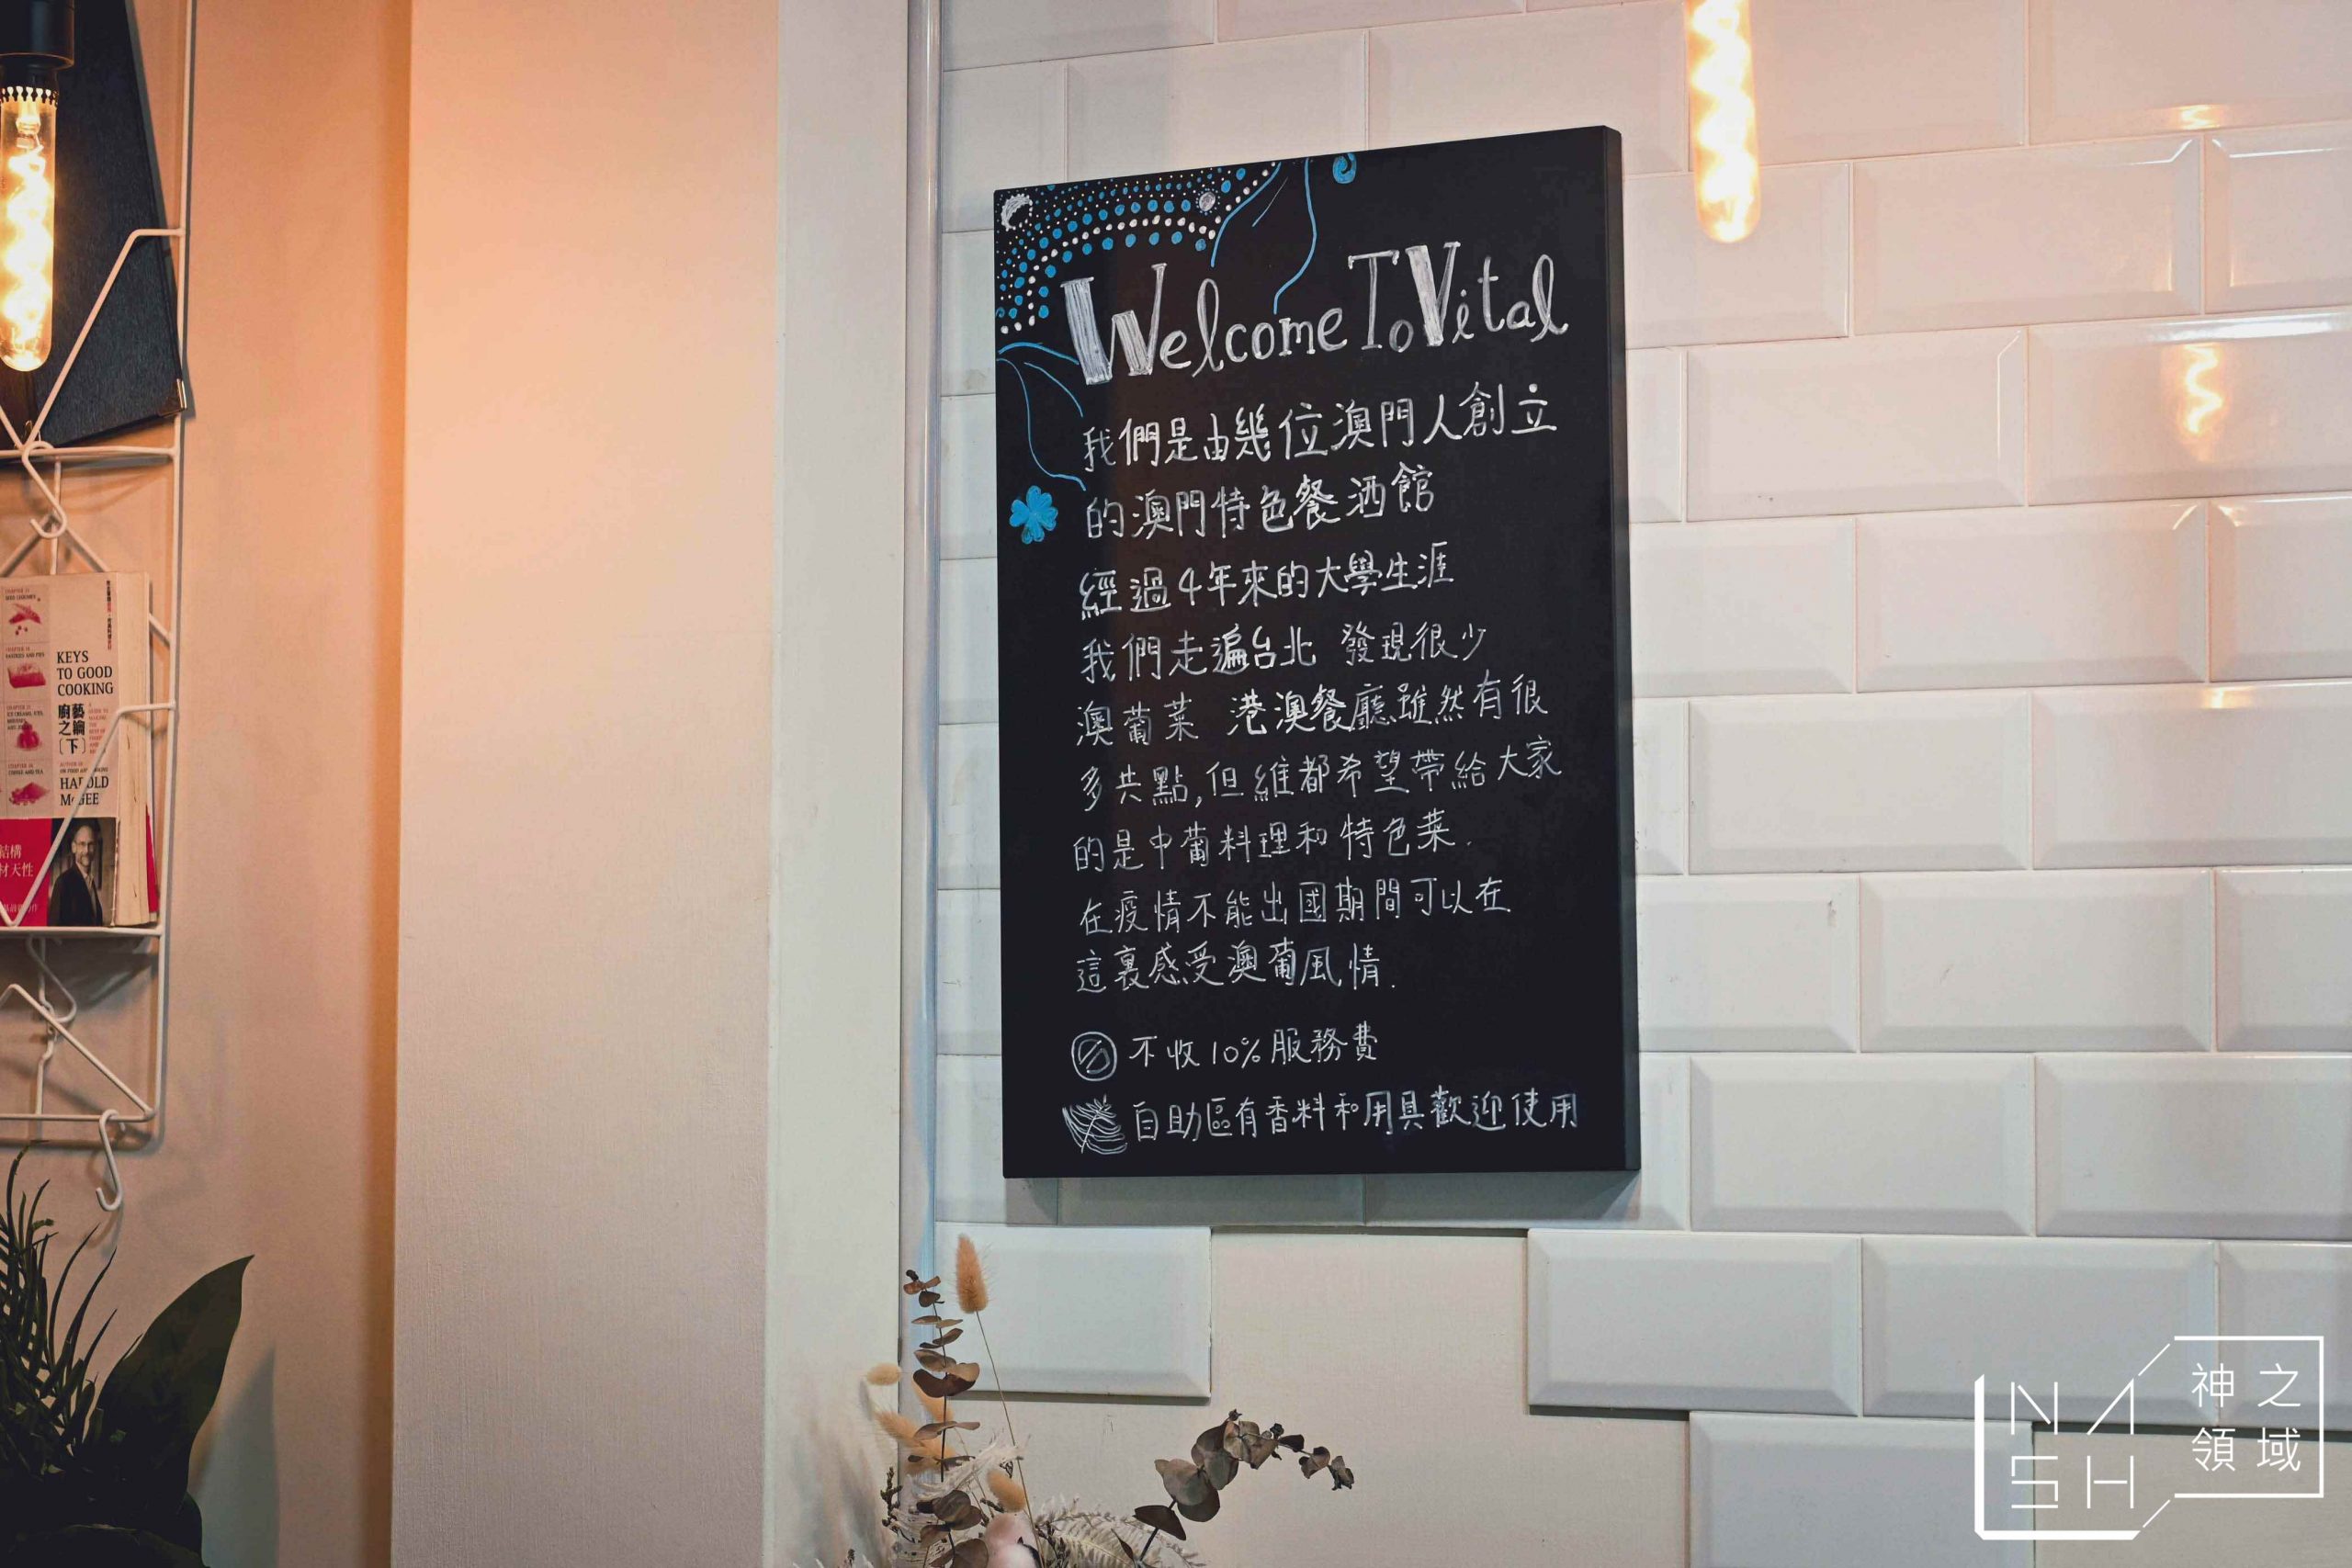 Welcome To Vital
我們是由幾位澳門人創立
的澳門特色餐酒館
經過4年來的大學生涯
我們走遍台北 發現很少
澳葡菜 港澳餐廳雖然有很
多共點,但維都希望帶給大家
的是中葡料理和特色菜.
在疫情不能出國期間可以在
這裏感受澳葡風情.
不收10%服務費
自助區有香料和用具歡迎使用
KEYS
TO GOOD
COOKING
廚藝
之鑰
〔下〕
HAROLD
McGEE
結構
材天性
NASH
神之
領域